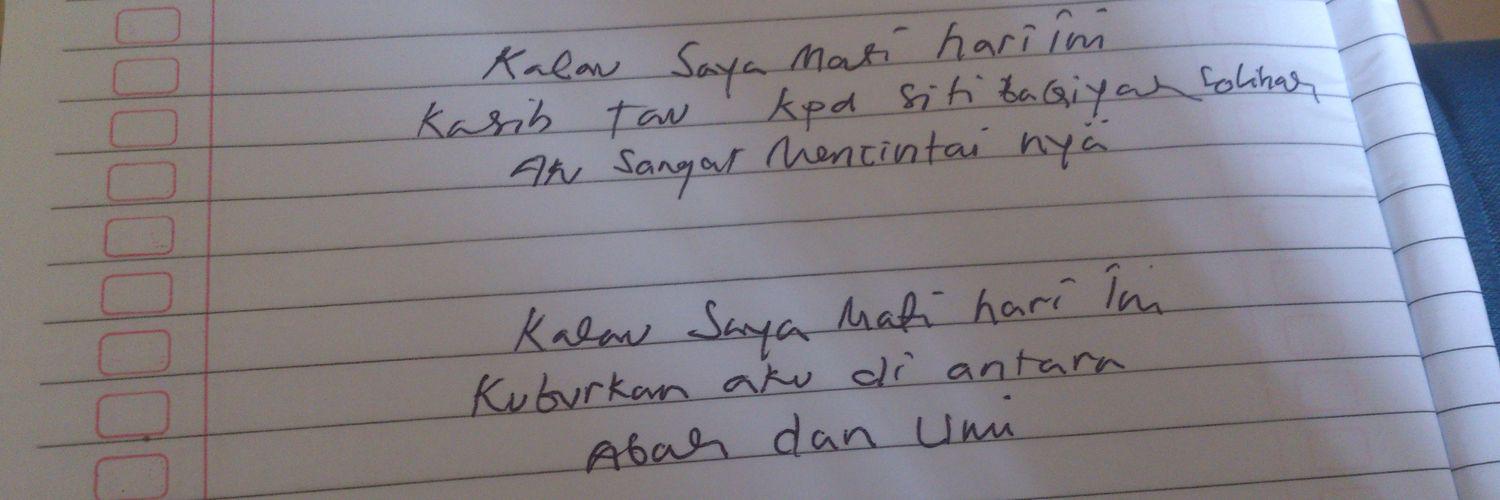 Kalau Saya Mati hari ini
Kasih tau kpd Siti taqiyah Solihah
Aku Sangat Mencintai nya
Kalau Saya Mati hari ini
Kuburkan aku di antara
Abah dan Umi